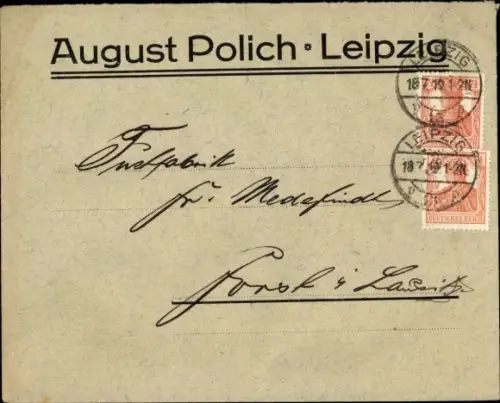 August Polich • Leipzig
LEIPZIG
18.7.19.1-2N.
LEIPZIG
18.7.19.1-2N.
DEUTSCHES REICH
Tuchfabrik
Fr. Medefindt,
Forst i. Lausitz